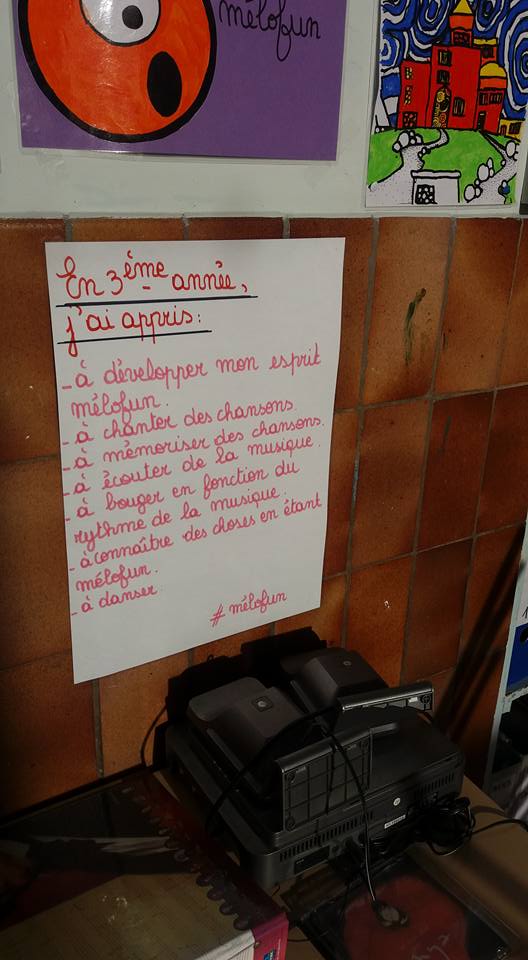 mélofun
En 3ème année,
j'ai appris:
- à développer mon esprit
mélofun.
- à chanter des chansons.
- à mémoriser des chansons.
- à écouter de la musique.
- à bouger en fonction du
rythme de la musique.
- à connaître des choses en étant
mélofun.
- à danser
# mélofun